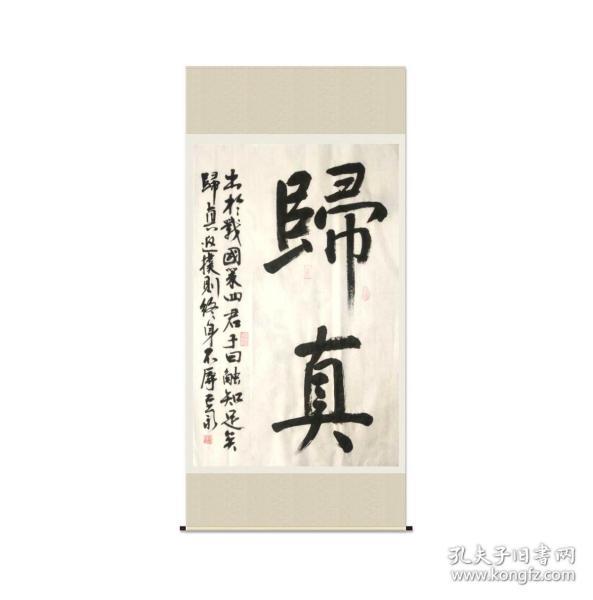 歸真
出於戰國策四君子曰觸知足矣
歸真返璞則終身不辱
孔夫子旧书网
www.kongfz.com